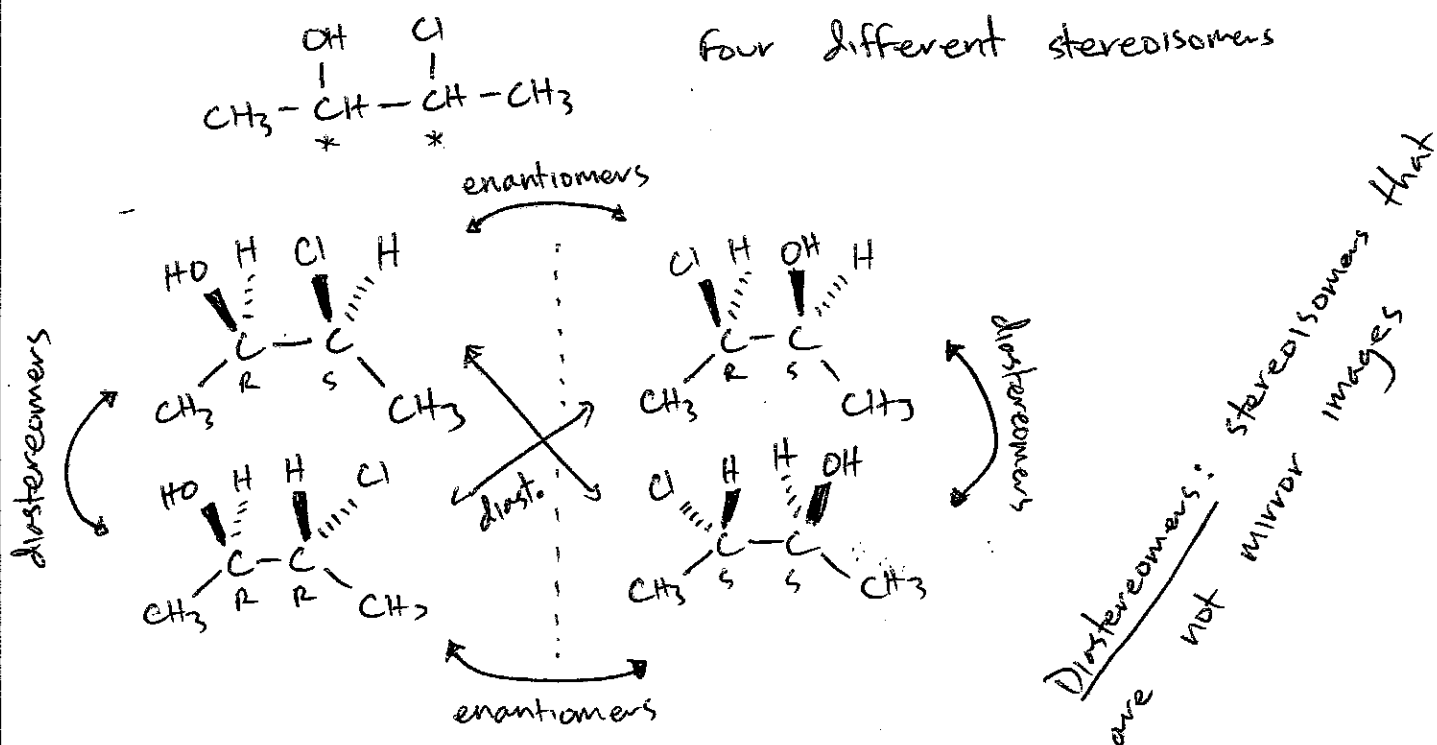 OH Cl
CH3 - CH - CH - CH3
* *
Four different stereoisomers
enantiomers
HO H Cl H
C - C
R S
CH3 CH3
Cl H OH H
C - C
R S
CH3 CH3
diastereomers
diast.
diastereomers
HO H H Cl
C - C
R R
CH3 CH3
Cl H H OH
C - C
S S
CH3 CH3
enantiomers
Diastereomers: stereoisomers that
are not mirror images